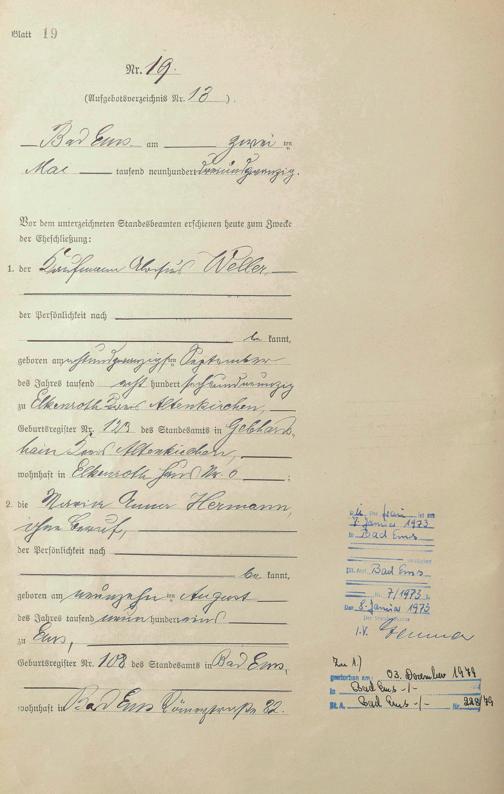 Blatt 19
Nr. 19.
(Aufgebotsverzeichnis Nr. 13).
Bad Ems am zwei ten
Mai tausend neunhundert dreiundzwanzig.
Vor dem unterzeichneten Standesbeamten erschienen heute zum Zwecke
der Eheschließung:
1. der Kaufmann Aloysius Weller
der Persönlichkeit nach
be kannt,
geboren am achtundzwanzigsten September
des Jahres tausend acht hundert sechsundneunzig
zu Elkenroth Kreis Altenkirchen,
Geburtsregister Nr. 123 des Standesamts in Gebhards-
hain Kreis Altenkirchen,
wohnhaft in Elkenroth Haus Nr. 6 ;
2. die Maria Anna Hermann,
ohne Beruf,
der Persönlichkeit nach
be kannt,
geboren am neunzehnten August
des Jahres tausend neun hundert eins
zu Ems,
Geburtsregister Nr. 108 des Standesamts in Bad Ems,
wohnhaft in Bad Ems Römerstraße 82.
Die Frau ist am
7. Januar 1973
in Bad Ems
St. Amt Bad Ems
Nr. 7/1973
Den 8. Januar 1973
Der Standesbeamte
I.V.
Zu 1.)
gestorben am: 03. Dezember 1979
in Bad Ems -/-
St. A. Bad Ems -/- Nr. 228/79